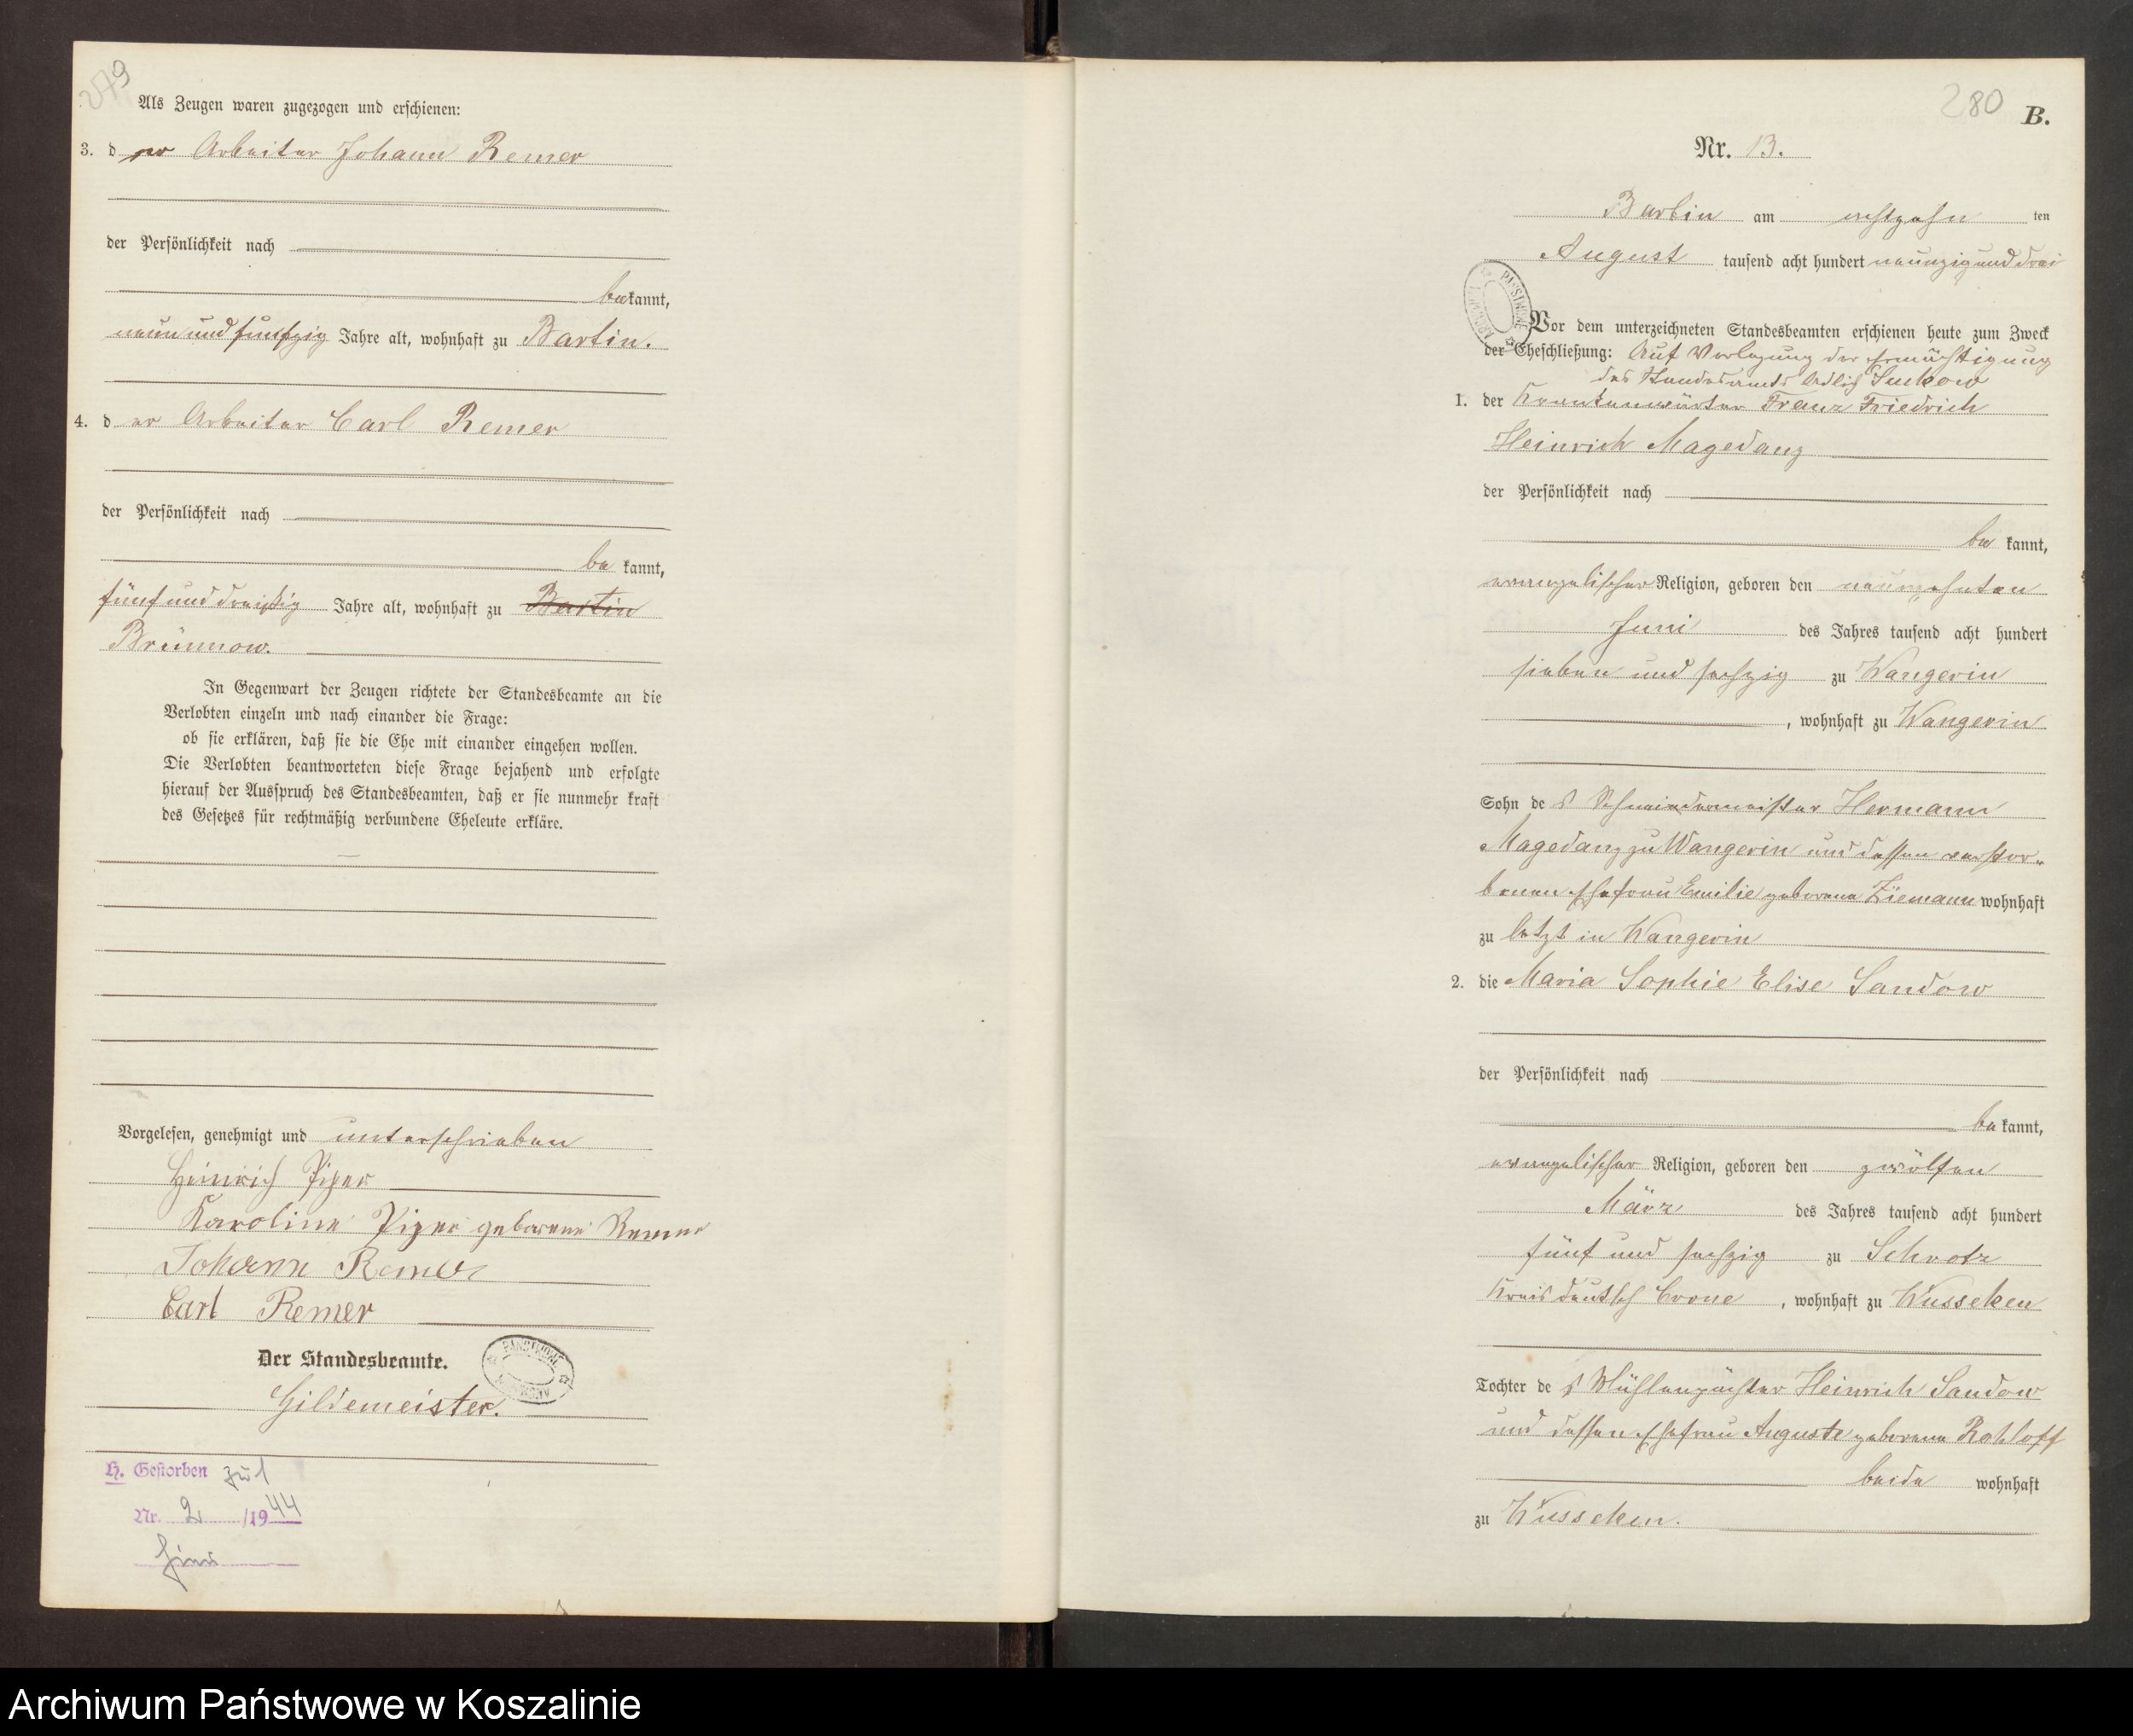 279
Als Zeugen waren zugezogen und erschienen:
3. d er Arbeiter Johann Remer
der Persönlichkeit nach
bekannt,
neunundfünfzig Jahre alt, wohnhaft zu Bartin.
4. d er Arbeiter Carl Remer
der Persönlichkeit nach
be kannt,
fünfunddreißig Jahre alt, wohnhaft zu Bartin
Brünnow.
In Gegenwart der Zeugen richtete der Standesbeamte an die
Verlobten einzeln und nach einander die Frage:
ob sie erklären, daß sie die Ehe mit einander eingehen wollen.
Die Verlobten beantworteten diese Frage bejahend und erfolgte
hierauf der Ausspruch des Standesbeamten, daß er sie nunmehr kraft
des Gesetzes für rechtmäßig verbundene Eheleute erkläre.
Vorgelesen, genehmigt und unterschrieben
Heinrich Piper
Karoline Piper geborene Remer
Johann Remer
Carl Remer
Der Standesbeamte.
Gildemeister.
H. Gestorben zu 1
Nr. 2 /1944
280
B.
Nr. 13.
Bartin am achtzehn ten
August tausend acht hundert neunzig und drei
Vor dem unterzeichneten Standesbeamten erschienen heute zum Zweck
der Eheschließung: Auf Vorlegung der Ermächtigung
des Standesamts Adlig Suckow
1. der Krankenwärter Franz Friedrich
Heinrich Magedanz
der Persönlichkeit nach
be kannt,
evangelischer Religion, geboren den neunzehnten
Juni des Jahres tausend acht hundert
sieben und sechzig zu Wangerin
, wohnhaft zu Wangerin
Sohn de s Schneidermeister Hermann
Magedanz zu Wangerin und dessen verstor-
benen Ehefrau Emilie geborene Ziemann wohnhaft
zu letzt in Wangerin
2. die Maria Sophie Elise Sandow
der Persönlichkeit nach
be kannt,
evangelischer Religion, geboren den zwölften
März des Jahres tausend acht hundert
fünf und sechzig zu Schrotz
Kreis Deutsch Crone , wohnhaft zu Wusseken
Tochter de s Mühlenpächter Heinrich Sandow
und dessen Ehefrau Auguste geborene Rohloff
beide wohnhaft
zu Wusseken.
Archiwum Państwowe w Koszalinie